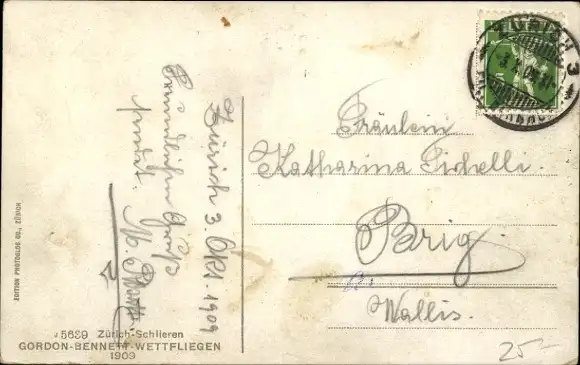 Zürich 3. Okt. 1909
Freundlichen Gruß
sendet
Fräulein
Katharina
Brig.
Wallis.
25.-
EDITION PHOTOGLOB CO., ZÜRICH
5639 Zürich-Schlieren
GORDON-BENNETT-WETTFLIEGEN
1909